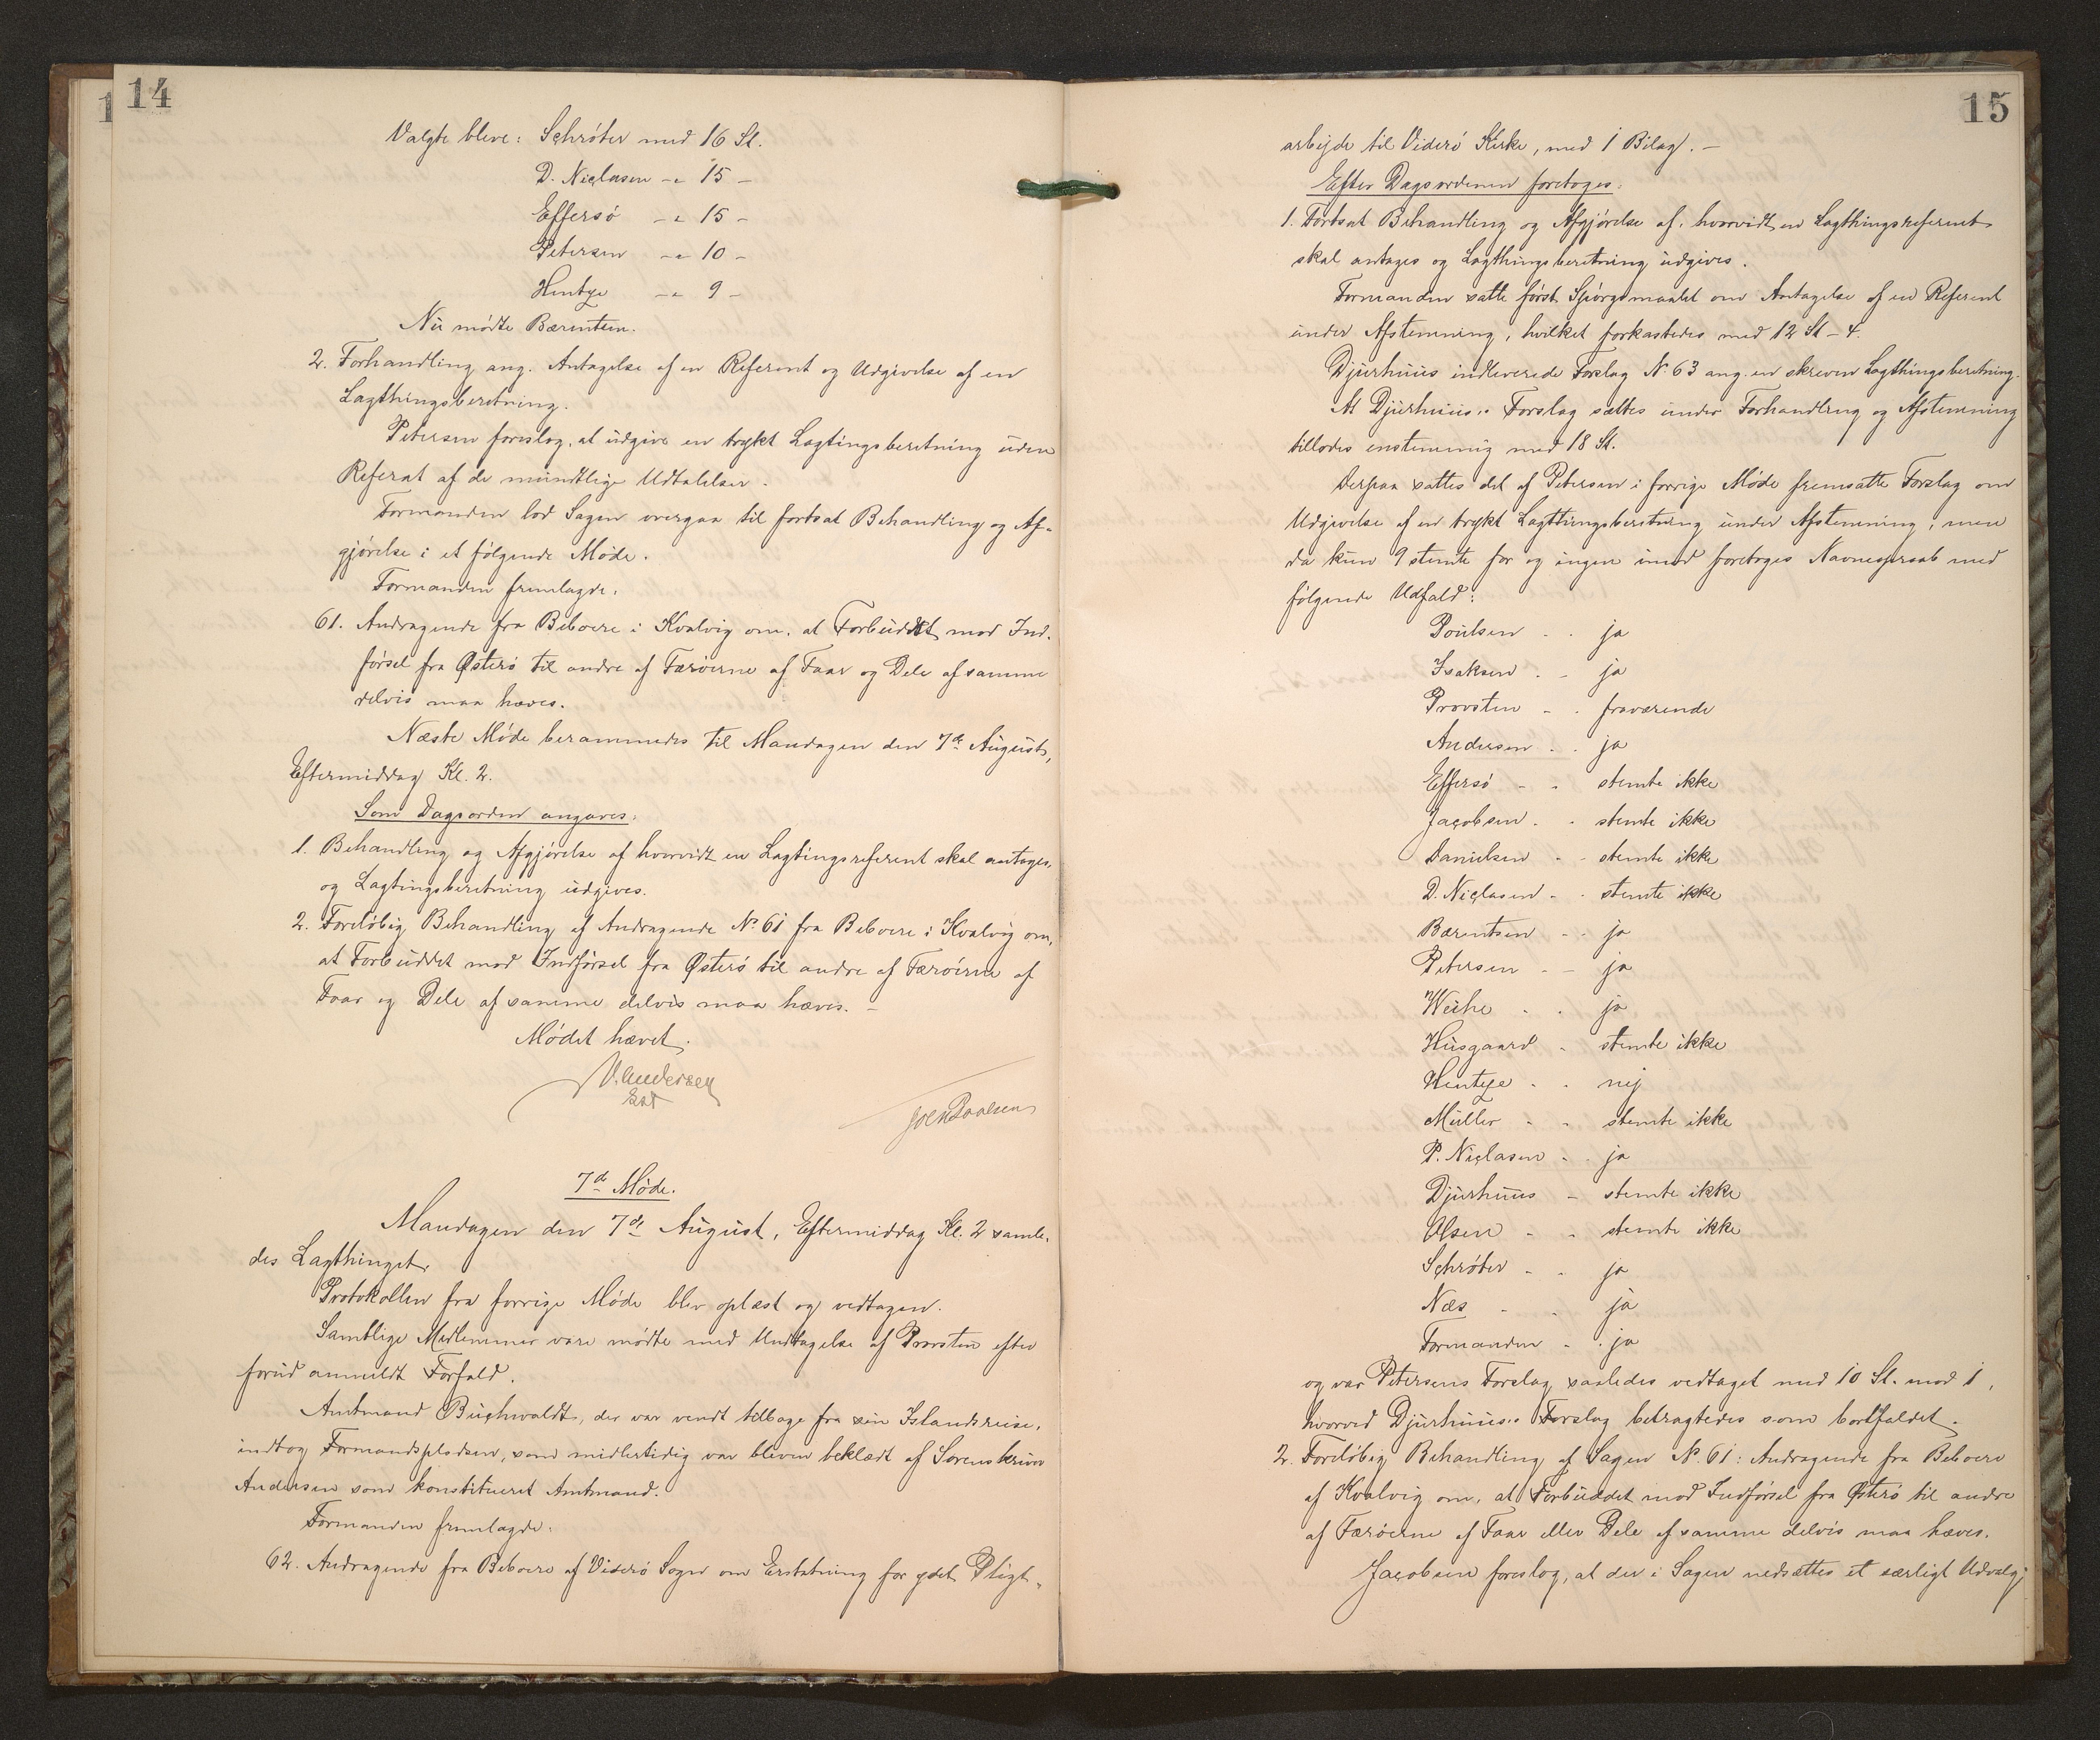 14
Valgte bleve: Schróter med 16 St.
D. Niclasen -"- 15 -
Effersó -"- 15 -
Petersen -"- 10 -
Hentze -"- 9 -
Nu módte Bærentsen.
2. Forhandling ang. Antagelse af en Referent og Udgivelse af en
Lagthingsberetning.
Petersen foreslog, at udgive en trykt Lagtingsberetning uden
Referat af de mundtlige Udtalelser.
Formanden lod Sagen overgaa til fortsat Behandling og Af-
gjórelse i et fólgende Móde.
Formanden fremlagde:
61. Andragende fra Beboere i Kvalvig om, at Forbuddet mod Ind-
fórsel fra Østeró til andre af Færóerne af Faar og Dele af samme
delvis maa hæves.
Næste Móde berammedes til Mandagen den 7de August,
Eftermiddag Kl. 2.
Som Dagsorden angaves:
1. Behandling og Afgjórelse af hvorvidt en Lagtingsreferent skal antages,
og Lagtingsberetning udgives.
2. Forelóbig Behandling af Andragende No 61 fra Beboere i Kvalvig om,
at Forbuddet mod Indfórsel fra Østeró til andre af Færóerne af
Faar og Dele af samme delvis maa hæves. -
Módet hævet.
V. Andersen
Est
Joen Poulsen
7de Móde.
Mandagen den 7de August, Eftermiddag Kl. 2 samle-
des Lagthinget.
Protokollen fra forrige Móde blev oplæst og vedtagen.
Samtlige Medlemmer vare módte med Undtagelse af Provsten efter
forud anmeldt Forfald.
Amtmand Buchwaldt, der var vendt tilbage fra sin Islandsreise,
indtog Formandspladsen, som midlertidig var bleven beklædt af Sorenskriver
Andersen som konstitueret Amtmand.
Formanden fremlagde:
62. Andragende fra Beboere af Videró Sogn om Erstatning for ydet Pligt-
15
arbejde til Videró Kirke, med 1 Bilag. -
Efter Dagsordenen foretoges:
1. Fortsat Behandling og Afgjórelse af, hvorvidt en Lagthingsreferent
skal antages og Lagthingsberetning udgives.
Formanden satte fórst Spórgsmaalet om Antagelse af en Referent
under Afstemning, hvilket forkastedes med 12 St - 4.
Djurhuus indleverede Forslag No 63 ang. en skreven Lagthingsberetning.
At Djurhuus's Forslag sættes under Forhandling og Afstemning
tillodes enstemmig med 18 St.
Derpaa sattes det af Petersen i forrige Móde fremsatte Forslag om
Udgivelse af en trykt Lagthingsberetning under Afstemning, men
da kun 9 stemte for og ingen imod foretoges Navneopraab med
fólgende Udfald:
Poulsen - - ja
Isaksen - - ja
Provsten - - fraværende
Andersen - - ja
Effersó - - stemte ikke
Jacobsen - - stemte ikke
Danielsen - - stemte ikke
D. Niclasen - - stemte ikke
Bærentsen - - ja
Petersen - - ja
Weihe - - ja
Husgaard - stemte ikke
Hentze - - nej
Müller - - stemte ikke
P. Niclasen - - ja
Djurhuus - stemte ikke
Olsen - - stemte ikke
Schróter - - ja
Næs - - ja
Formanden - - ja
og var Petersens Forslag saaledes vedtaget med 10 St. mod 1,
hvorved Djurhuus's Forslag betragtedes som bortfaldet.
2. Forelóbig Behandling af Sagen No 61: Andragende fra Beboere
af Kvalvig om, at Forbuddet mod Indfórsel fra Østeró til andre
af Færóerne af Faar eller Dele af samme delvis maa hæves.
Jacobsen foreslog, at der i Sagen nedsættes et særligt Udvalg;